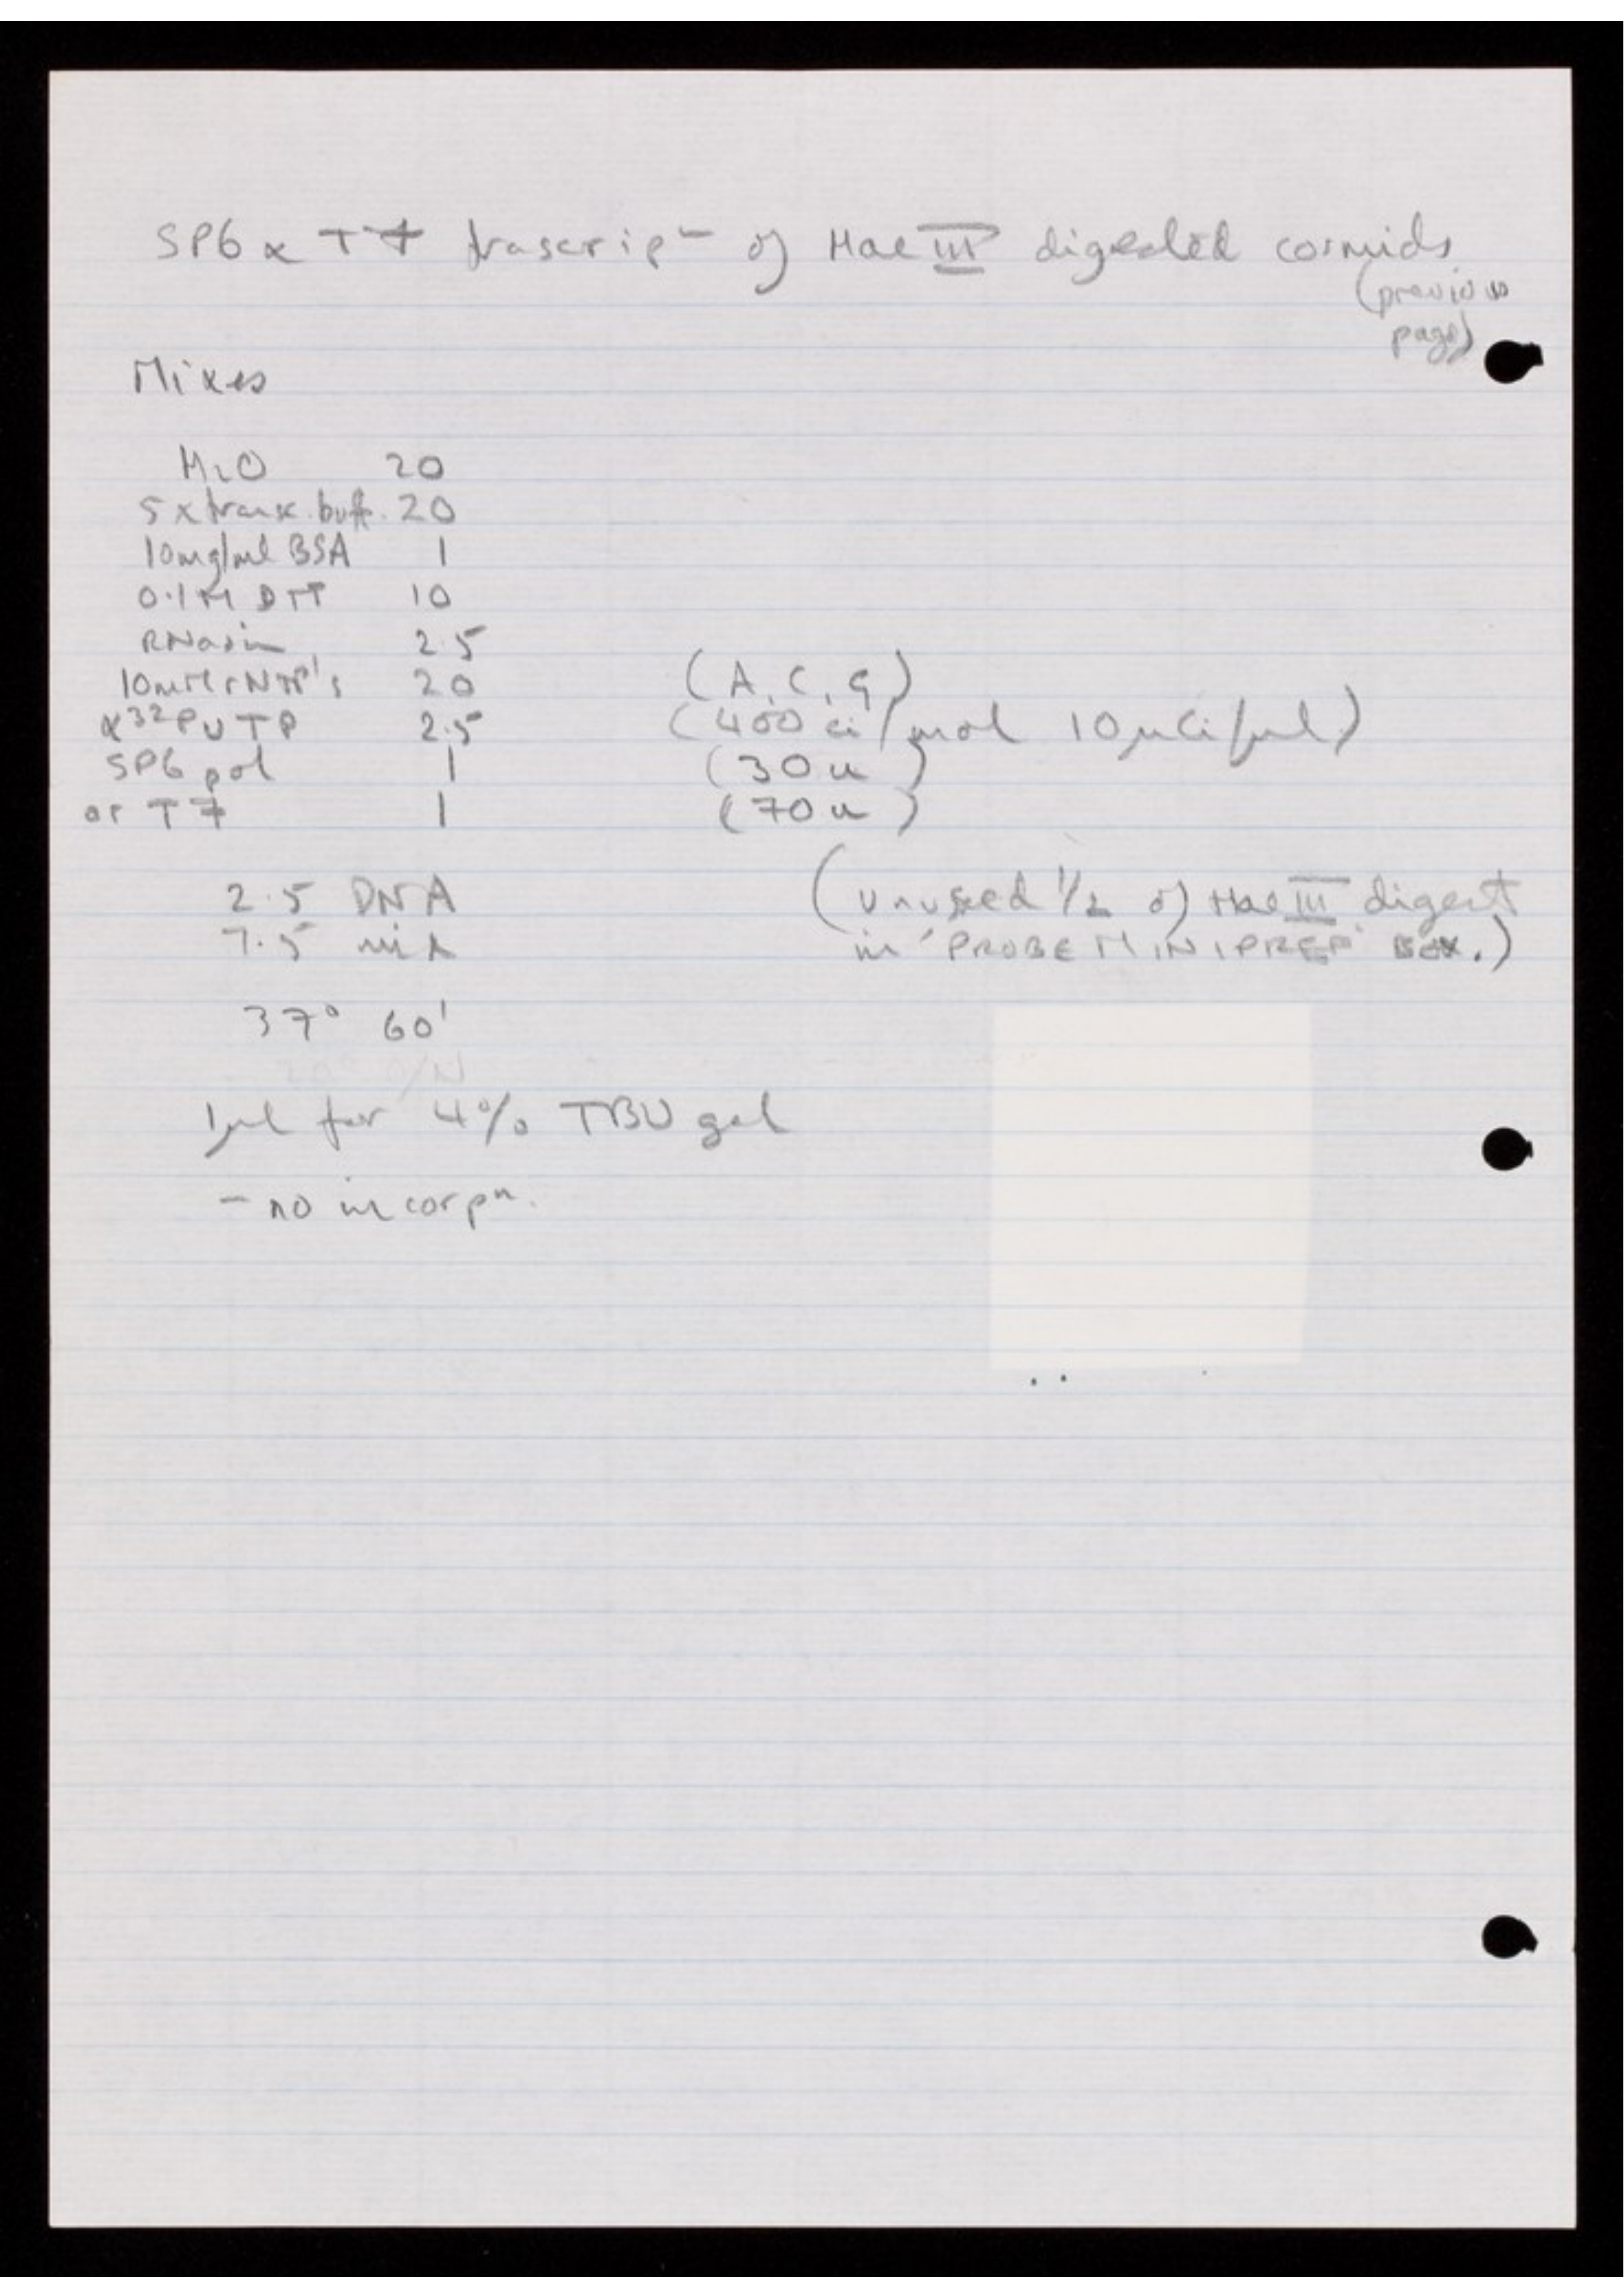 SP6 & T7 trascripn of Hae III digested cosmids
(previous
page)
Mixes
H2O 20
5x transc. buff. 20
10mg/ml BSA 1
0.1M DTT 10
RNasin 2.5
10mM rNTP's 20 (A, C, G)
α32P UTP 2.5 (400 Ci/mol 10μCi/μl)
SP6 pol 1 (30u)
or T7 1 (70u)
2.5 DNA (unused 1/2 of Hae III digest
7.5 mix in 'PROBE MINIPREP' BOX.)
37° 60'
20° O/N
1μl for 4% TBU gel
- no incorpn.